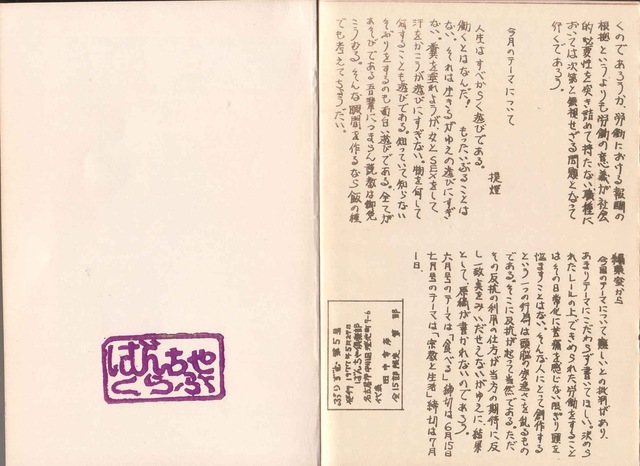 くのであろうか。労働における報酬の
根拠というよりも労働の意義が社会
的必要性を突き詰めて持たない職種に
おいては次第と儀視せざる問題となって
行くであろう。
今月のテーマについて
提煙
人生はすべからく遊びである。
働くとはなんだ！もったいぶることは
ない。それは生きるがゆえの遊びにすぎ
ない。糞を垂れようが、女とSEXをして
汗をかこうが遊びにすぎない。物を何して
何することも遊びである。知っていて知らない
そぶりをするのも面白い遊びである。全てが
あそびである吾輩につまらん説教は御免
こうむる。そんな暇間を作るなら飯の種
でも考えてたほうがいい。
編集室から
今回のテーマについて難しいとの批判があり、
あまりテーマにこだわらず書いてほしい。決めら
れたレールの上できめられた労働をすること
はその日常化に苦痛を感じない限り頭を
悩ますことはない。そんな人にとって創作する
という一つの行為は頭脳の安逸さを乱すもの
である。そこに反抗が起って当然である。ただ
その反抗の利用の仕方が当方の期待に反
し一致点をみいだせえないがゆえに、結果
として、原稿が書かれないのであろう。
六月号のテーマは「食べる」締切は6月15日
七月号のテーマは「宗教と生活」締切は7月
1日。
第5号
発行 1977年5月27日
ばんちゃ倶楽部
代表 田中
全15部限定
ばんちゃ
くらぶ